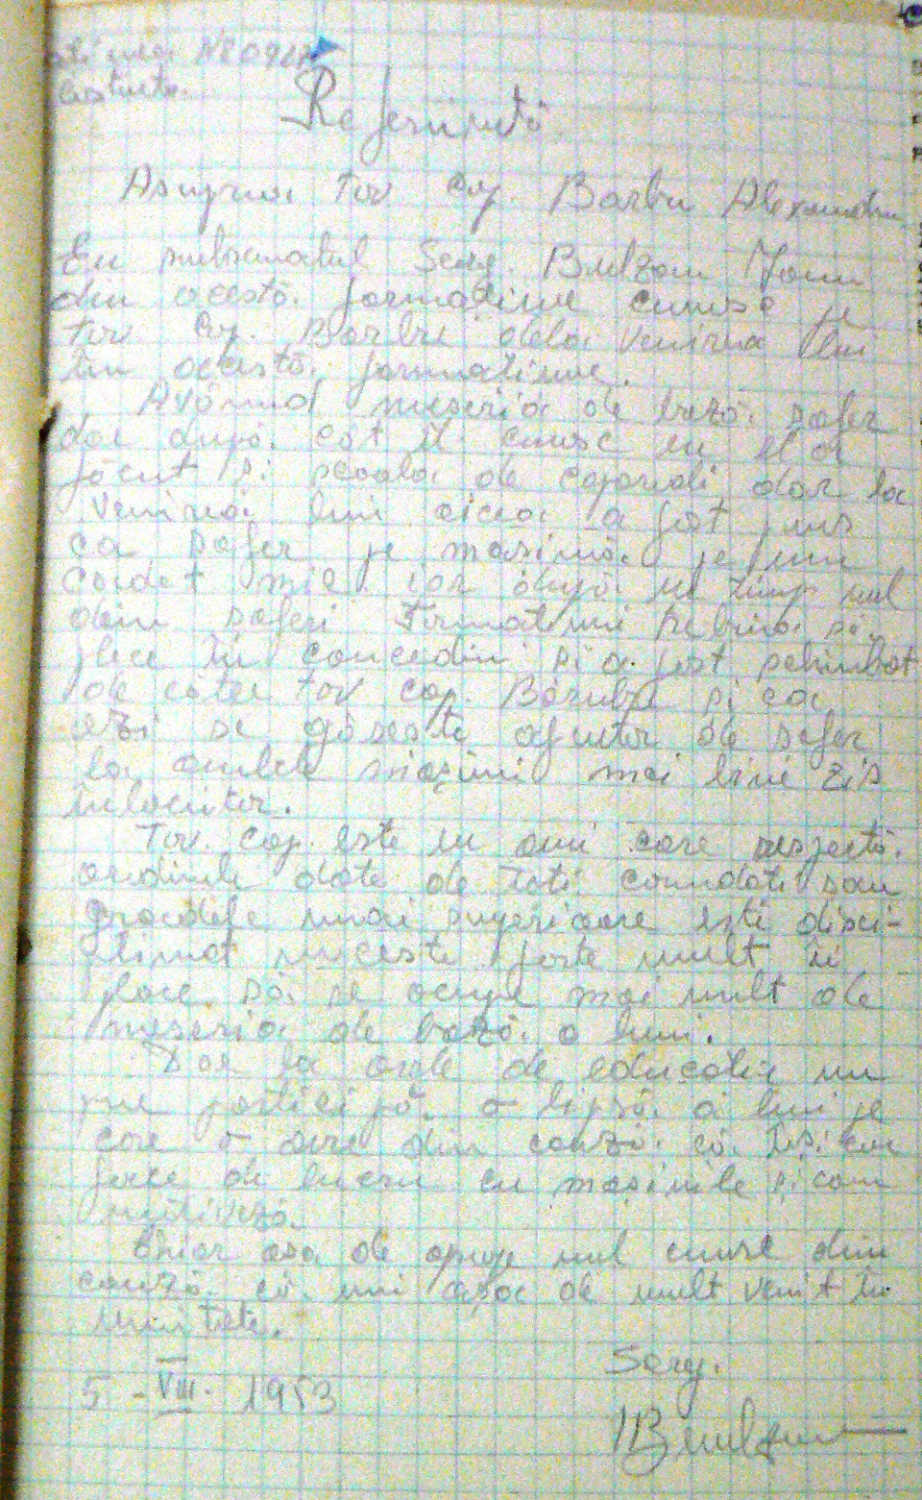 Referință
Asupra tov cap. Barbu Alexandru
Eu subsematul Serg. Bulzan Ioan
din această formațiune cunosc pe
tov Cap. Barbu dela venirea lui
în această formațiune.
Avănd meseria de bază șofer
dar după căt îl cunosc eu el a
făcut și școala de caporali dar la
venirea lui aicea a fost pus
ca șofer pe mașină pe un
mic iar după un timp unul
din șoferi formatiuni trebuia să
plece în concediu și a fost schimbat
de cătei tov cap. Barbu și ca
azi se găsește ajutor de șofer
la ambele mașini mai bine zis
înlocuitor.
Tov. cap. este un om care respectă
ordinele date de toti comndati sau
gradele mai superioare esti disci-
plinat muceste forte mult îi
place să se ocupe mai mult de
meseria de bază a lui.
Dar la orele de educatie nu
pre patici pă o lipsă a lui pe
care o are din cauză că îsi
face de lucru cu mașinile și cam
Chiar asa de apuape nul cunosc din
cauză că nui așa de mult venit în
unitate.
5 - VIII. 1953
Serg.
Bulzan